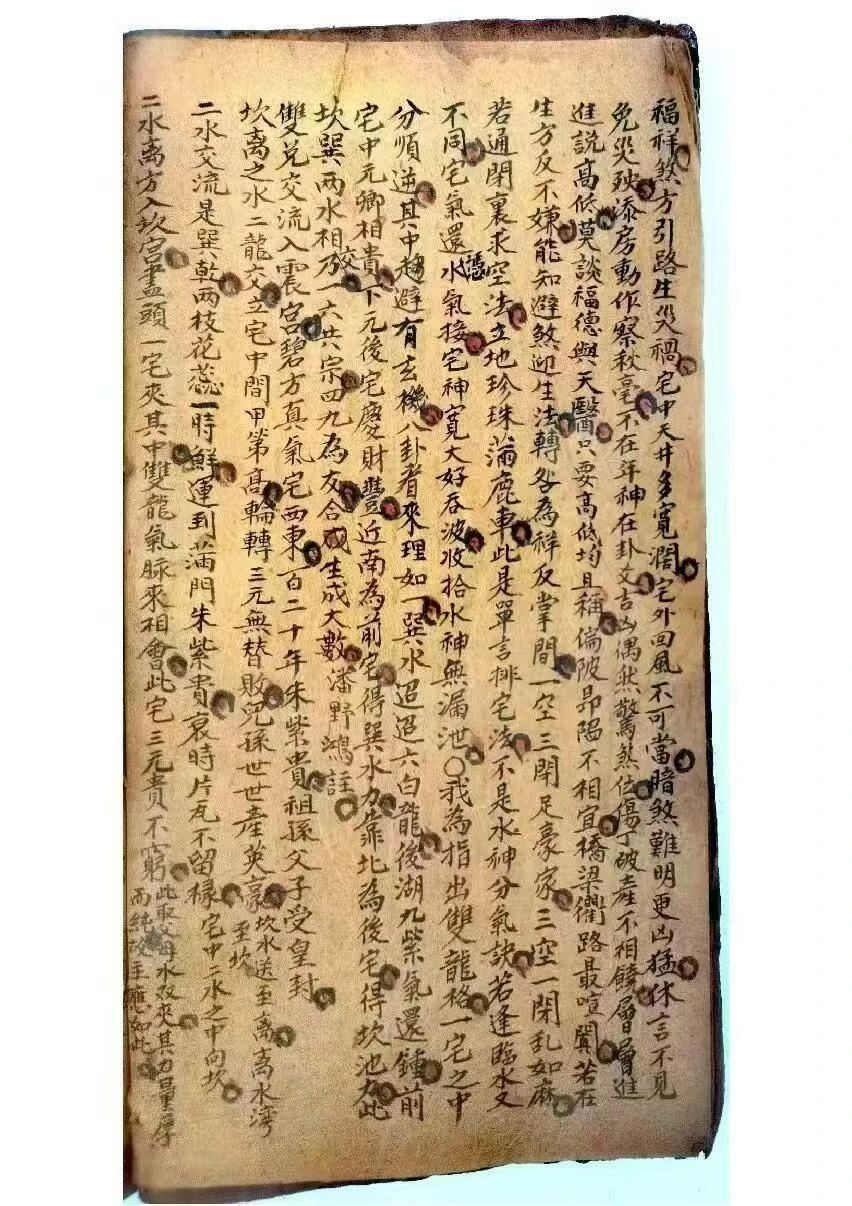 福祥煞方引路生災禍宅中天井多寬濶宅外回風不可當暗煞難明更凶猛休言不見
免災殃添房動作察秋毫不在年神在卦爻吉凶偶然驚煞位傷丁破產不相饒層層進
進説高低莫談福德與天醫只要高低均且稱偏陂昂陷不相宜橋梁衢路最喧闐若在
生方反不嫌能知避煞迎生法轉咎為祥反掌間一空三閉足豪家三空一閉乱如麻
若通閉裏求空法立地珍珠滿鹿車此是單言排宅法不是水神分氣訣若逢臨水又
不同宅氣還憑水氣接宅神寬大好吞波收拾水神無漏泄〇我為指出雙龍格一宅之中
分順逆其中趨避有玄機八卦看來理如一巽水迢迢六白龍後湖九紫氣還鍾前
宅中元卿相貴下元後宅慶財豐近南為前宅得巽水力靠北為後宅得坎池力此
坎巽兩水相交乃一六共宗四九為友合成生成大數潘野鴻註
雙兌交流入震宮碧方真氣宅西東一百二十年朱紫貴祖孫父子受皇封
坎离之水二龍交立宅中間甲第高輪轉三元無替敗兒孫世世產英豪坎水送至离离水灣至坎
二水交流是巽乾两枝花蕊一時鮮運到滿門朱紫貴衰時片瓦不留椽宅中二水之中向坎
二水离方入坎宮盡頭一宅夾其中雙龍氣脉來相會此宅三元貴不窮此取父母水双夾其力量厚而純故主應如此